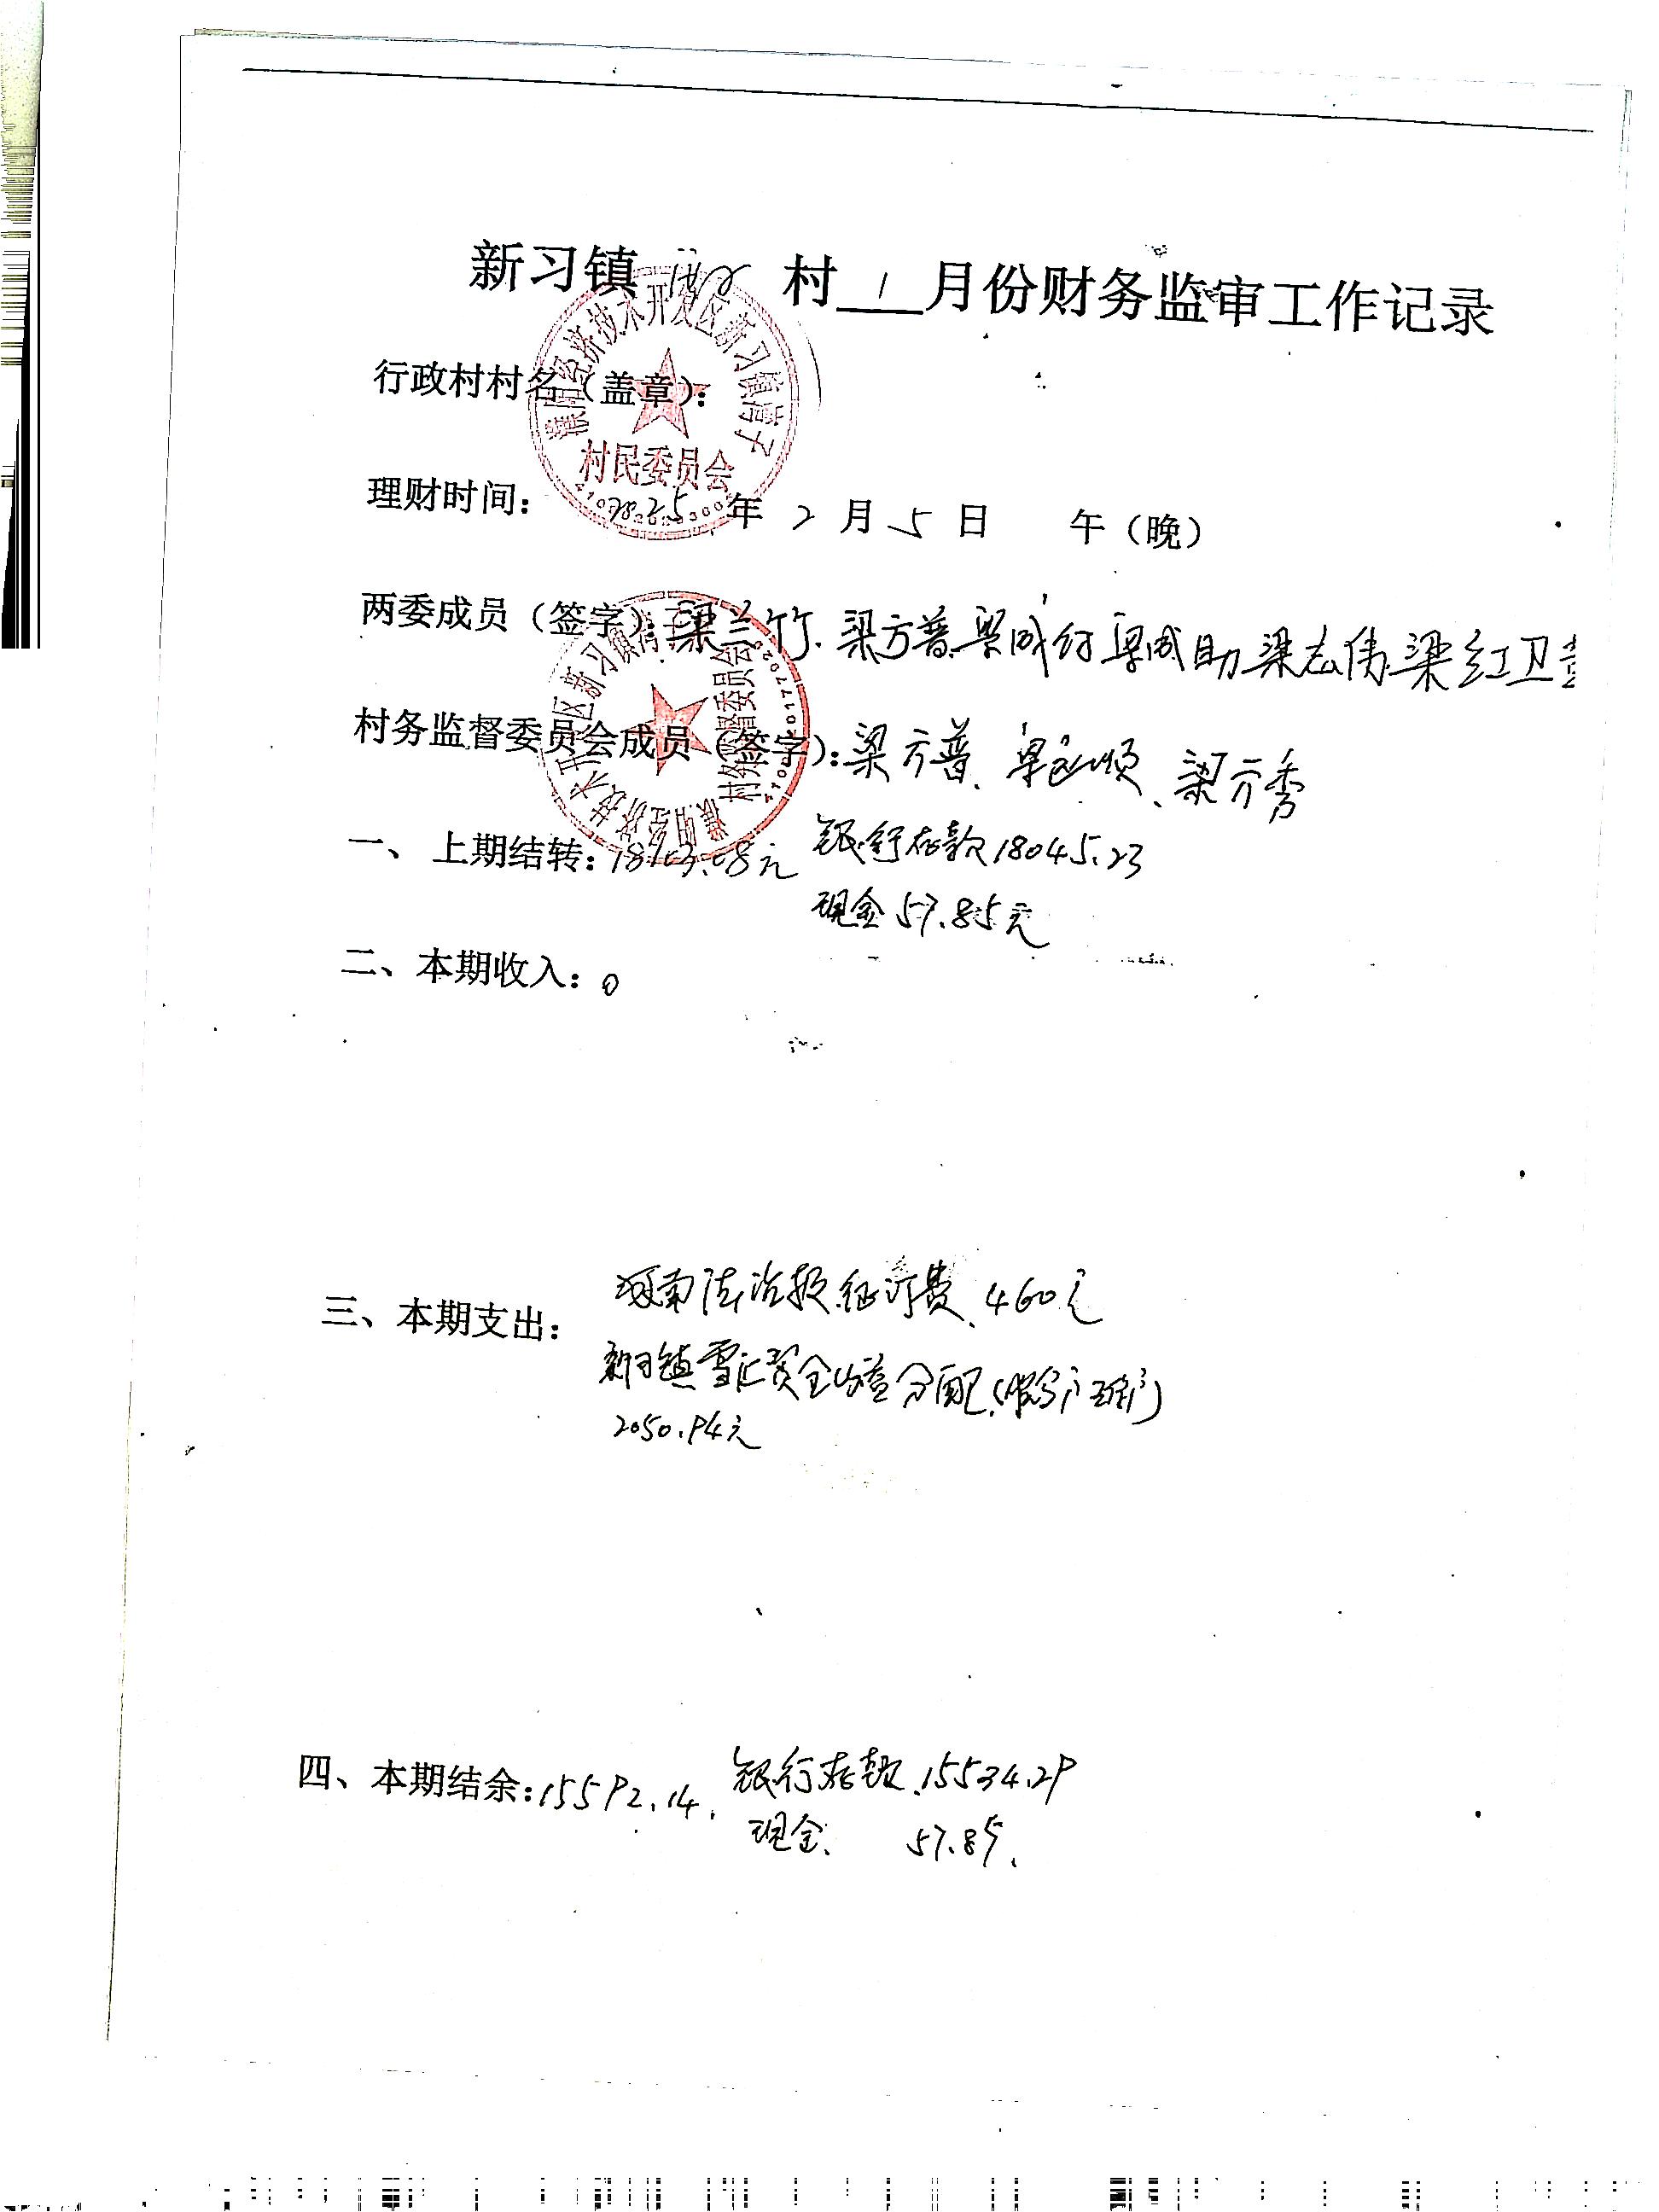 新习镇 村 1 月份财务监审工作记录
行政村村名（盖章）：
濮阳经济技术开发区新习镇
村民委员会
理财时间： 2025 年 2 月 5 日 午（晚）
两委成员（签字）：梁兰竹、梁方普、梁成行 梁成自力 梁志伟 梁红卫
开发区新习镇
村务监督委员会
村务监督委员会成员（签字）：梁方普、 梁 顺、梁方秀
一、上期结转：18103.08元 银行存款18045.23
现金57.85元
二、本期收入：0
三、本期支出： 河南法治报征订费、460元
新习镇雪汇资金收益分配（ ）
2050.94元
四、本期结余：15592.14. 银行存款.15534.29
现金. 57.85.